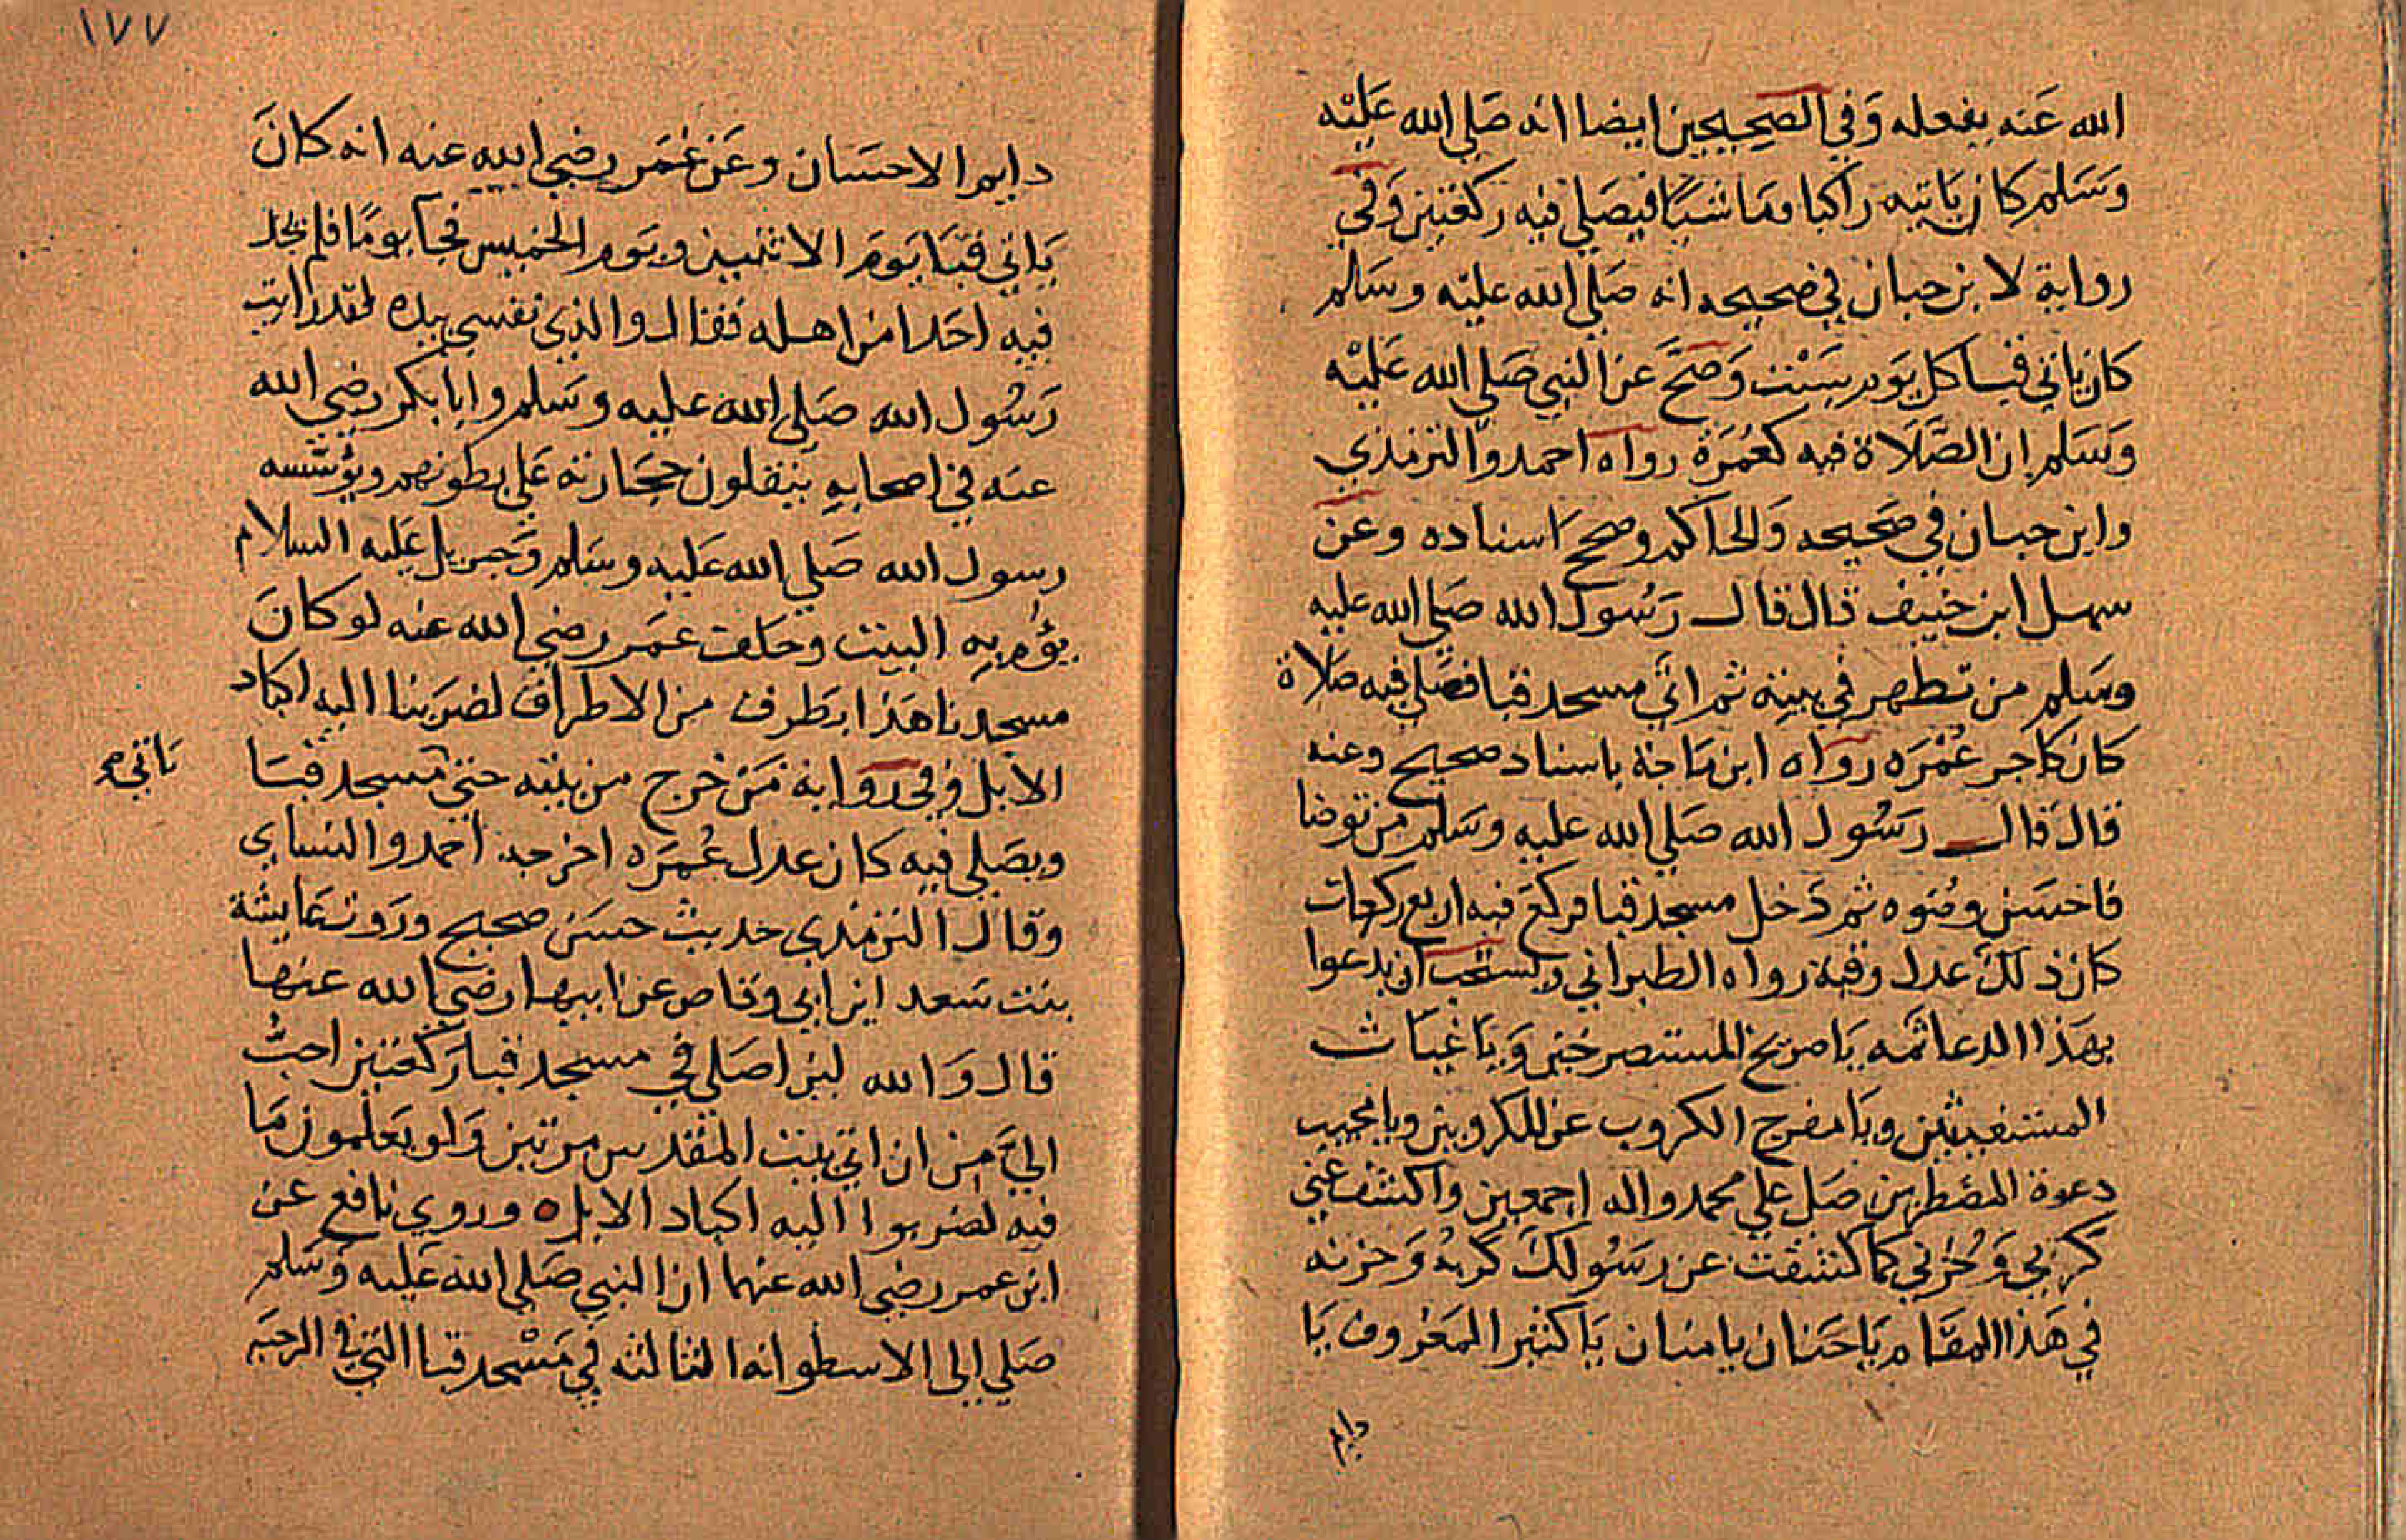 الله عَنه بفعله وَفي الصَحِيحين ايضا انه صَلي الله عَليْه
وَسَلم كان يَاتيه راكبا ومَاشيًا فيصَلي فيه ركعتين وَفي
رواية لابن حبان في صحيحه انه صَلي الله عليْه وسَلم
كان ياتي قبا كل يَوم سَبْت وَصَحَّ عن النبي صَلي الله عَليْه
وَسَلم ان الصَّلَاة فيه كعُمَرَة رواه احمد والترمذي
وابن حبان في صَحيحه وَالحاكم وصحح اسناده وعَن
سهل ابن حنيف قال قال رَسُول الله صَلي الله عليه
وسَلم من تطهر في بيته ثم اتي مسجد قبا فصَلي فيه صَلَاة
كان كاجر عُمْرَه رَواه ابن مَاجَة باسناد صحيح وعنه
قال قال رَسُول الله صَلي الله عليه وسَلم من توضا
فاحسَن وضوه ثم دَخل مسجد قبا فركع فيه اربع ركعات
كان ذلك عدل رقبة رواه الطبراني ويستحب ان يدعوا
بهَذا الدعا ثمه يَا صريخ المستصرخين وَيا غيَاث
المستغيثين ويَا مفرج الكروب عن المكروبين ويا مجيب
دعوة المضطرين صَل علي محمد واله اجمعين واكشف عني
كَرْبي وَحُزني كما كشفت عن رسُولك كَربهُ وَحزنه
في هَذا المقَام يَا حَنان يا منان يَا كثير المَعْروف يَا
دايم
١٧٧
دايم الاحسَان وعَن عُمَر رضي الله عنه انه كانَ
يَاتي قبَا يَومَ الاثنين ويَوم الخميس فجا يومًا فلم يجد
فيه احَدا من اهله فقال والذي نفسي بيده لقد رايت
رَسُول الله صَلي الله عليه وسَلم وابا بكر رضي الله
عنه في اصحابه ينقلون حجَارته عَلي بطونهم ويؤسسه
رسول الله صَلي الله عَليه وسَلم وَجبريل عَليه السلام
يؤم به البيت وحَلف عمَر رضي الله عنه لو كانَ
مسجدنا هَذا بطَرف من الاطراف لضرَبنا اليه اكباد
الابل وفي رواية مَن خرج من بيته حتي مسجد قبَا
يَاتي صح
ويصَلي فيه كان عدل عُمَرَه اخرجه احمد والنساي
وقال الترمذي حَديث حسَن صحيح ورَوت عَايشة
بنت سَعد ابن ابي وقاص عن ابيها رضي الله عنها
قال وَالله لين اصَلي في مسجد قبا رَكعتين احبُّ
اليَّ من ان اتي بيت المقدس مرتين وَلو يَعلمون مَا
فيه لضربوا اليه اكباد الابل وروي نافع عن
ابن عمر رضي الله عنهما ان النبي صَلي الله عَليه وَسَلم
صَلي الي الاسطوانه الثالثه في مَسْجد قبا التي في الرحبَه